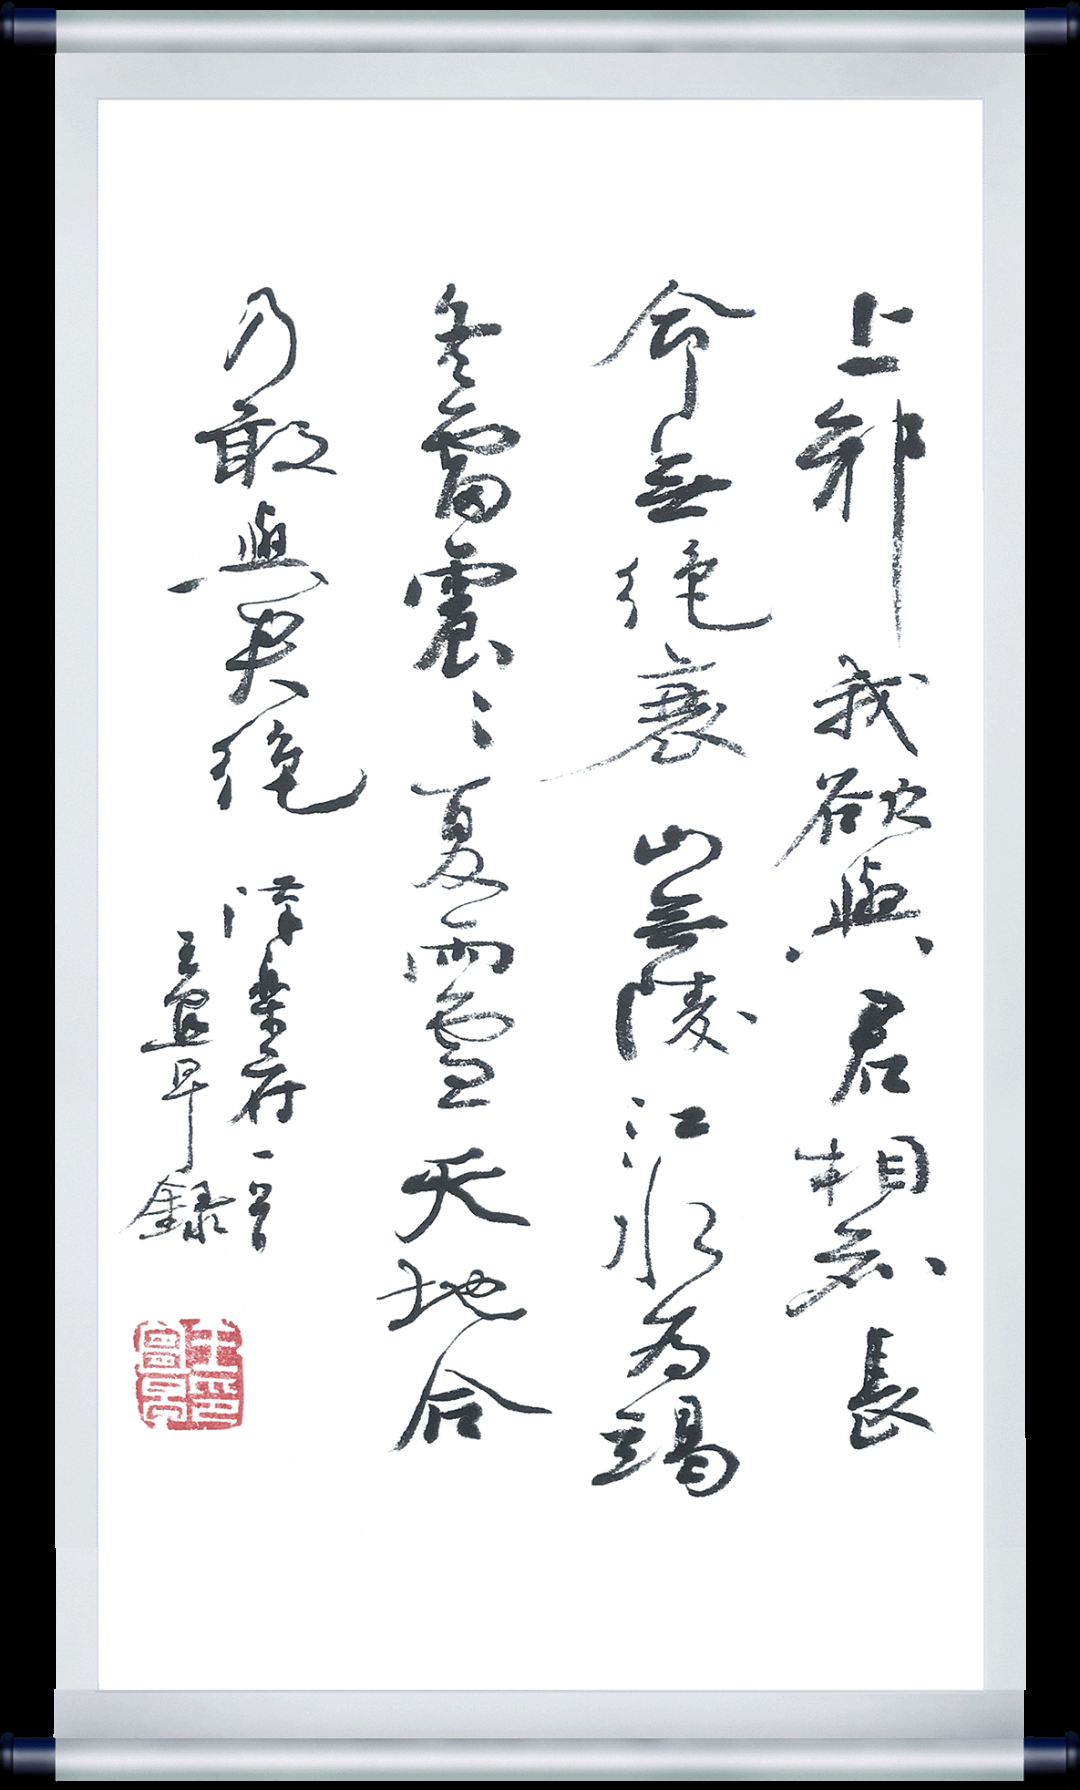 上邪我欲與君相知長
命無絕衰山無陵江水為竭
冬雷震〻夏雨雪天地合
乃敢與君絕
漢樂府一首
王宜早錄